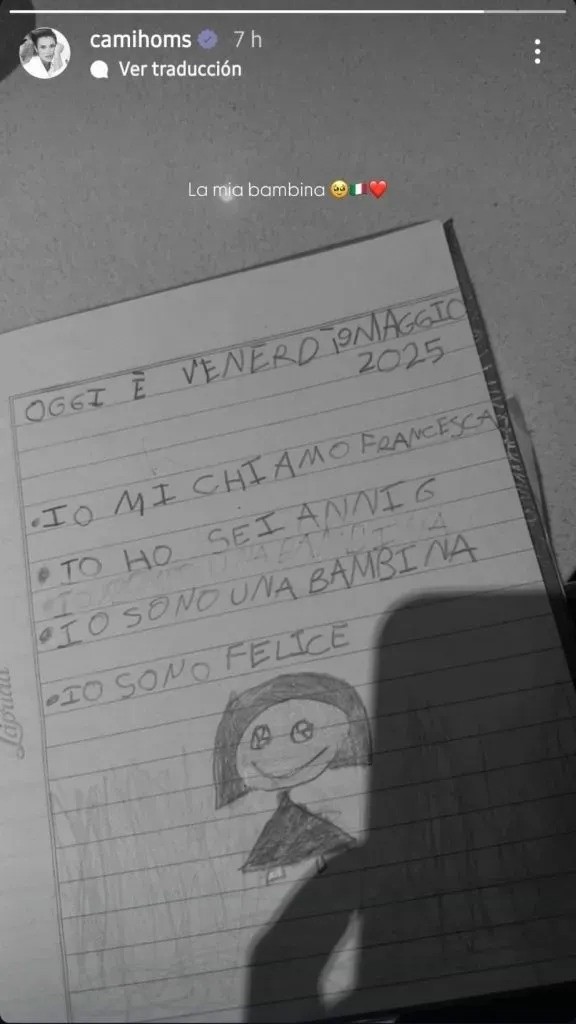 camihoms 7 h
Ver traducción
La mia bambina 🥹🇮🇹❤️
OGGI È VENERDÌ 9 MAGGIO
2025
•IO MI CHIAMO FRANCESCA
•IO HO SEI ANNI 6
•IO SONO UNA BAMBINA
•IO SONO FELICE